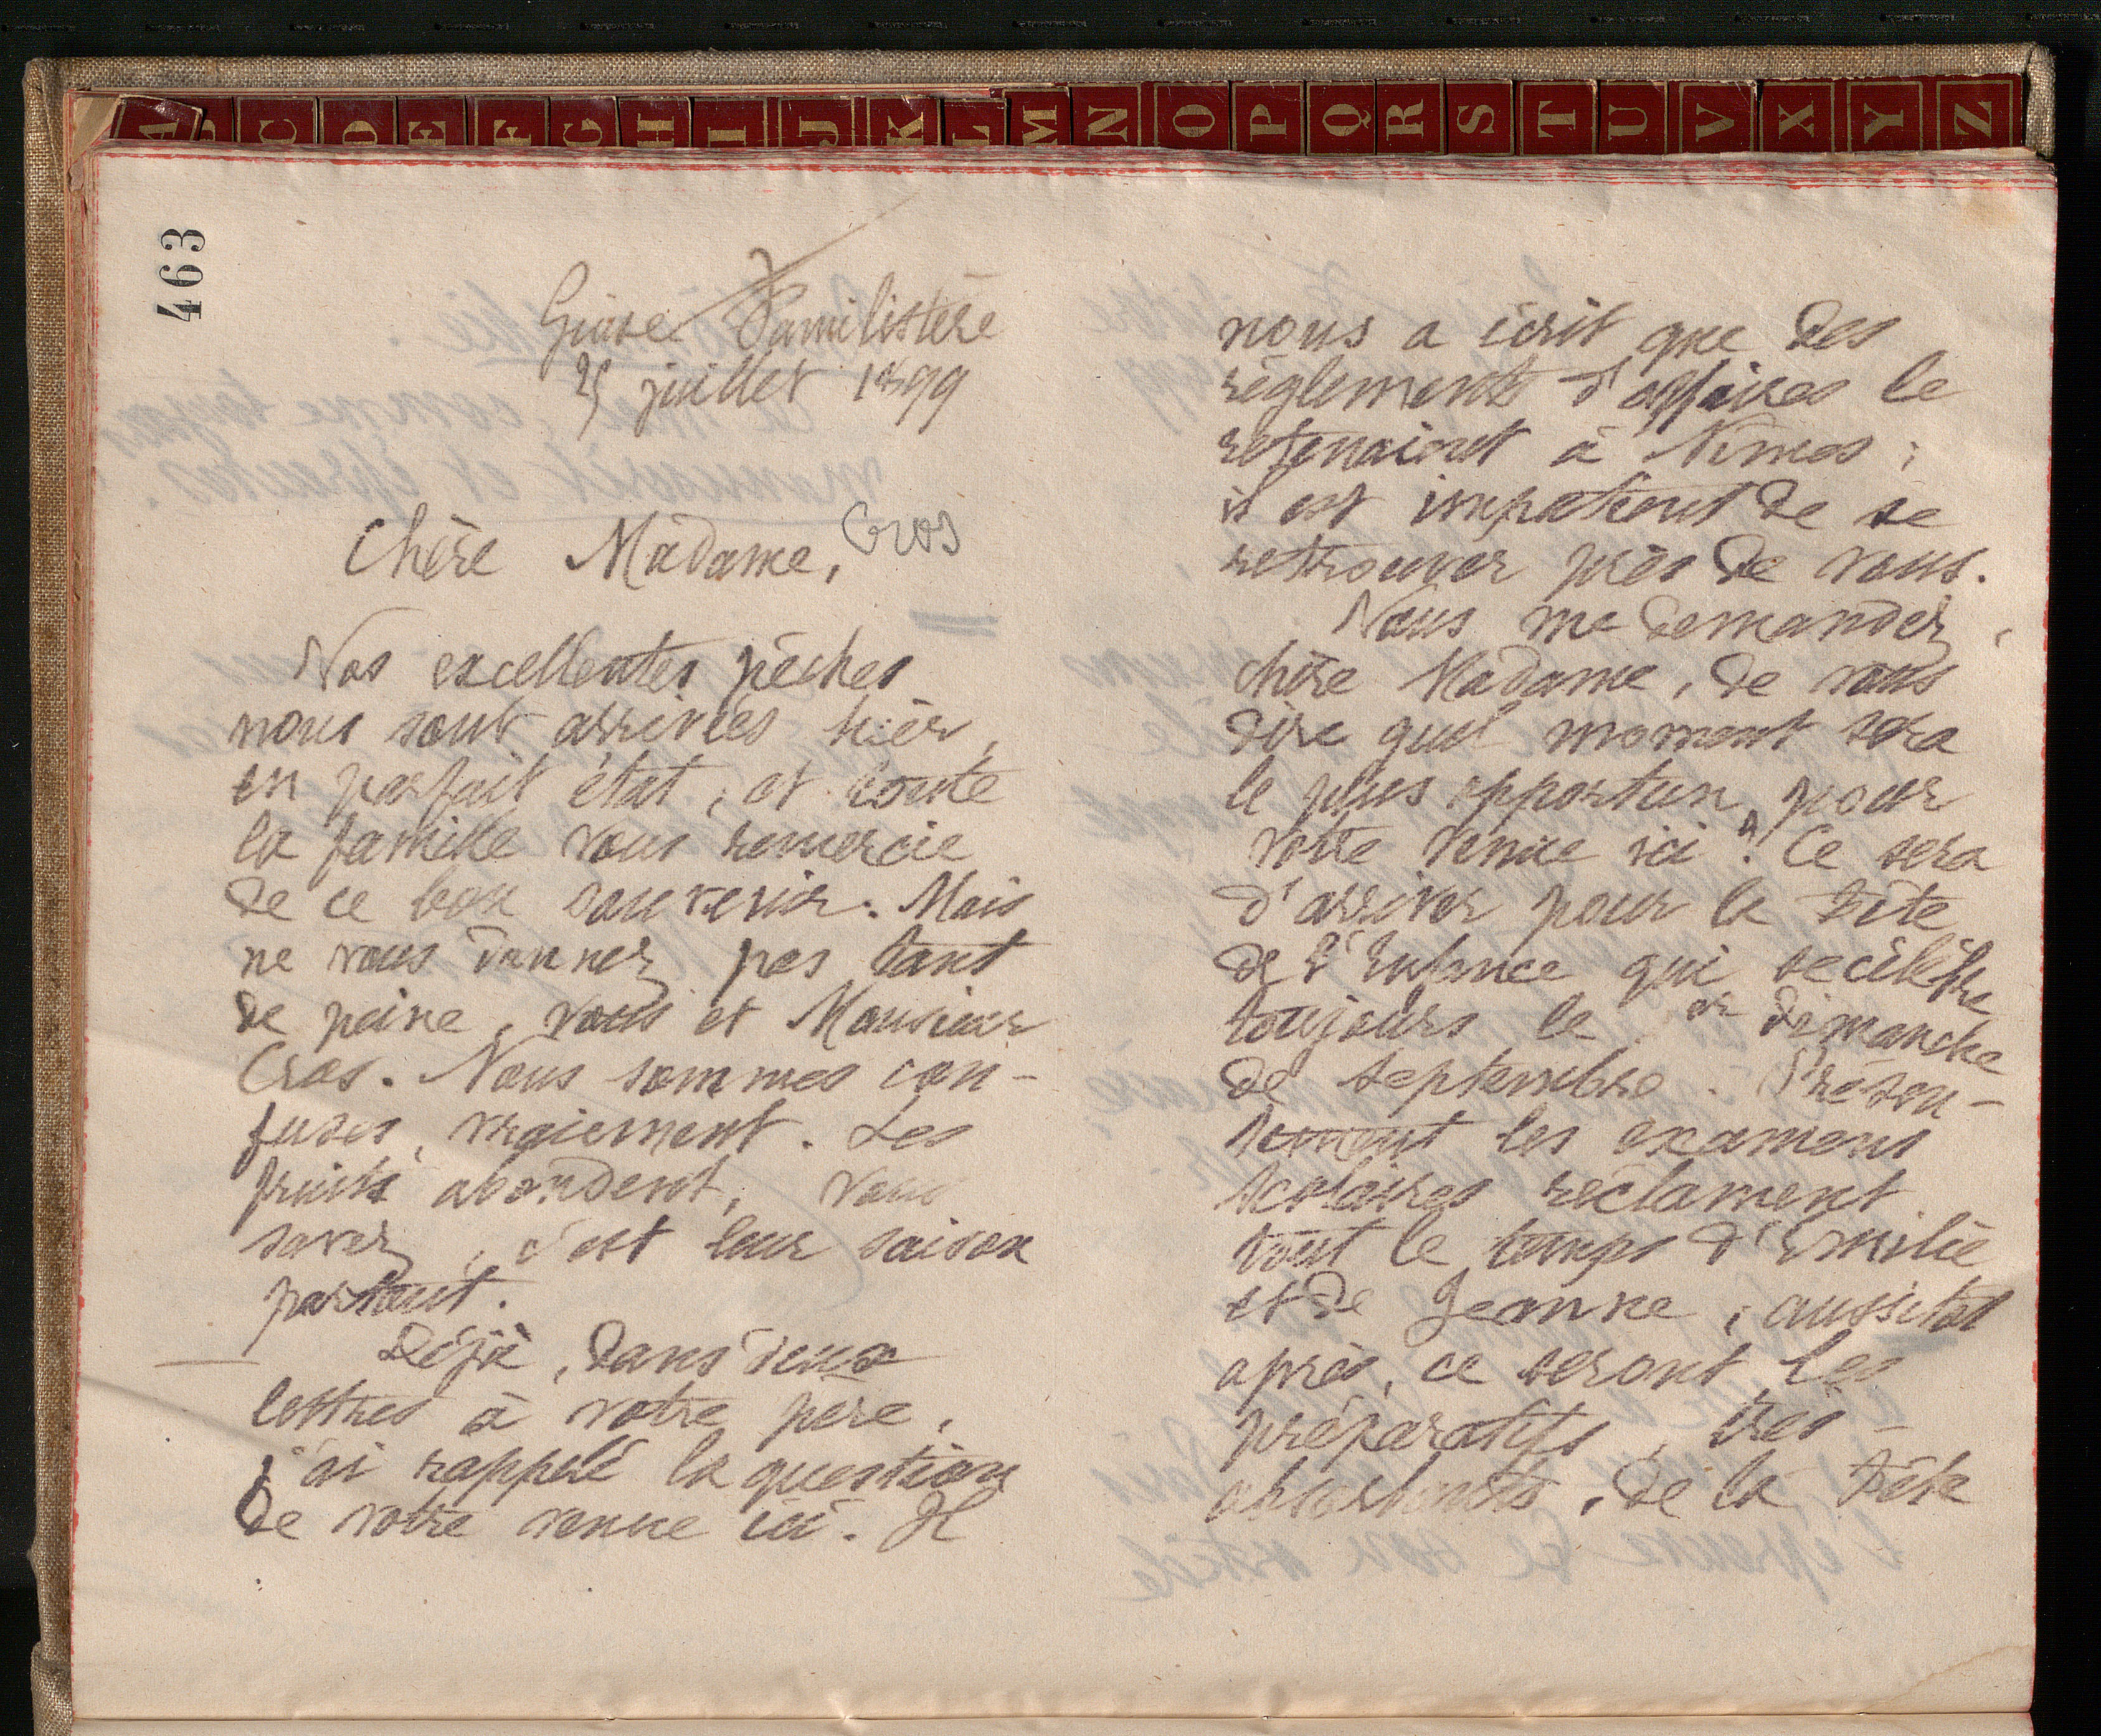 A B C D E F G H I J K L M N O P Q R S T U V X Y Z
463
Guise Familistère
25 juillet 1899
Chère Madame, Cros
Vos excellentes pêches
nous sont arrivées hier,
en parfait état, et toute
la famille vous remercie
de ce bon souvenir. Mais
ne vous donnez pas tant
de peine, vous et Monsieur
Cros. Nous sommes con-
fuses, vraiement. Les
fruits abondent, vous
savez, c'est leur saison
partout.
Déjà, dans deux
lettres à votre père,
j'ai rappelé la question
de votre venue ici. Il
nous a écrit que des
règlements d'affaires le
retenaient à Nimes ;
il est impatient de se
rettrouver près de vous.
Vous me demandez,
chère Madame, de vous
dire quel moment sera
le plus opportun pour
votre venue ici. Ce sera
d'arriver pour la Fête
de l'Enfance qui se célèbre
toujours le 1er dimanche
de septembre. Présen-
tement les examens
scolaires réclament
tout le temps d'Emilie
et de Jeanne ; aussitôt
après, ce seront les
préparatifs, très-
absorbants, de la Fête